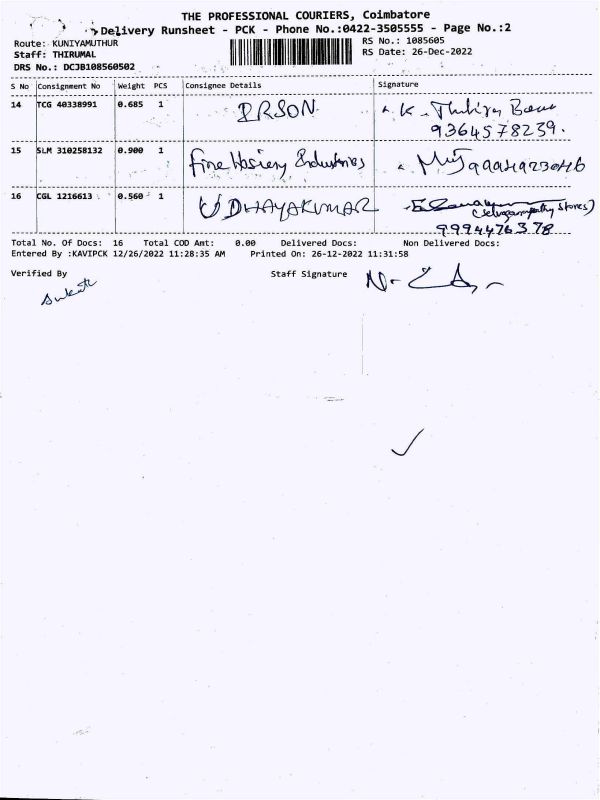 THE PROFESSIONAL COURIERS, Coimbatore
Delivery Runsheet - PCK - Phone No.:0422-3505555 - Page No.:2
Route: KUNIYAMUTHUR
RS No.: 1085605
Staff: THIRUMAL
RS Date: 26-Dec-2022
DRS No.: DCJB108560502
S No Consignment No Weight PCS Consignee Details Signature
14 TCG 40338991 0.685 1
9364578239.
15 SLM 310258132 0.900 1 Fine Hosiery Industries
16 CGL 1216613 0.560 1 UDHAYAKUMAR
Stores)
9994476378
Total No. Of Docs: 16 Total COD Amt: 0.00 Delivered Docs: Non Delivered Docs:
Entered By :KAVIPCK 12/26/2022 11:28:35 AM Printed On: 26-12-2022 11:31:58
Verified By Staff Signature